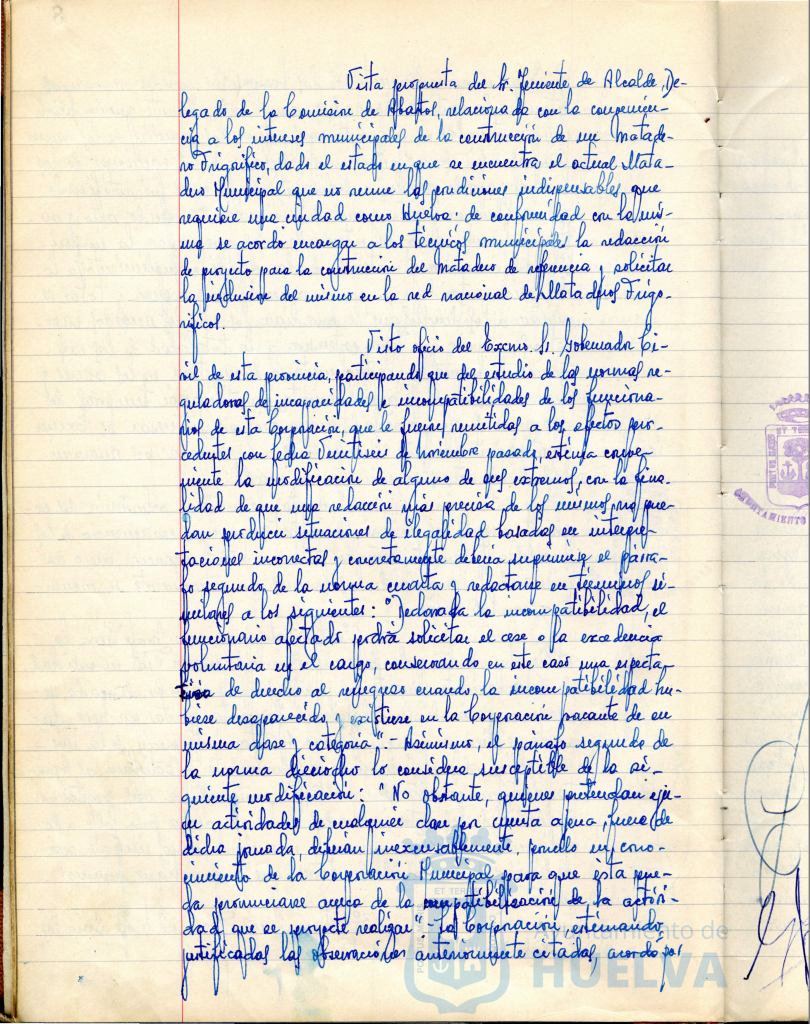 Vista propuesta del Sr. Teniente de Alcalde, De-
legado de la Comisión de Abastos, relacionada con la convenien-
cia a los intereses municipales de la construcción de un Matade-
ro Frigorífico, dado el estado en que se encuentra el actual Mata-
dero Municipal que no reune las condiciones indispensables que
requiere una ciudad como Huelva: de conformidad con la mis-
ma se acordó encargar a los técnicos municipales la redacción
de proyecto para la construcción del Matadero de referencia y solicitar
la inclusión del mismo en la red nacional de Mataderos Frigo-
ríficos.
Visto oficio del Excmo. Sr. Gobernador Ci-
vil de esta provincia, participando que del estudio de las normas re-
guladoras de incapacidades e incompatibilidades de los funciona-
rios de esta Corporación, que le fueron remitidas a los efectos pro-
cedentes con fecha Veintiseis de noviembre pasado, estima conve-
niente la modificación de alguno de sus extremos, con la fina-
lidad de que una redacción más precisa de los mismos, no pue-
dan producir situaciones de ilegalidad basadas en interpre-
taciones incorrectas y concretamente debería suprimirse el párra-
fo segundo de la norma cuarta y redactarse en términos si-
milares a los siguientes: "Declarada la incompatibilidad, el
funcionario afectado podrá solicitar el cese o la excedencia
voluntaria en el cargo, conservando en este caso una expecta-
tiva de derecho al reingreso cuando la incompatibilidad hu-
biese desaparecido y existiese en la Corporación vacante de su
misma clase y categoría".- Asimismo, el párrafo segundo de
la norma dieciocho lo considera susceptible de la si-
guiente modificación: "No obstante, quienes pretendan ejer-
cer actividades de cualquier clase por cuenta ajena, fuera de
dicha jornada, deberían inexcusablemente, ponerlo en cono-
cimiento de la Corporación Municipal para que ésta pue-
da pronunciarse acerca de la compatibilización de la activi-
dad que se proyecte realizar".- La Corporación, estimando
justificadas las observaciones anteriormente citadas, acordó por
Ayuntamiento de
HUELVA